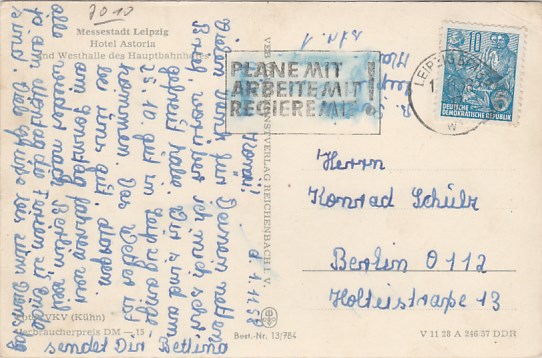 Messestadt Leipzig
Hotel Astoria
und Westhalle des Hauptbahnhofes
PLANE MIT
ARBEITE MIT
REGIERE MIT!
LEIPZIG
10
DEUTSCHE
DEMOKRATISCHE REPUBLIK
d. 1.11.58
Vielen Dank für Deinen netten
Brief worüber ich mich sehr
gefreut habe. Wir sind am
25.10. gut in Leipzig ange-
kommen. Das Wetter ist
bei uns gut
am Sonntag fahren wir
alle wieder nach Berlin weil
ja am Montag die Ferien zu Ende
sind. Viel Grüße bis zum
sendet Dir Bettina
Herrn
Konrad Schulz
Berlin O 112
Holteistraße 13
VKV (Kühn)
Verbraucherpreis DM —.15
REICHENBACH i. V.
Best.-Nr. 13/784
V 11 28 A 246/57 DDR